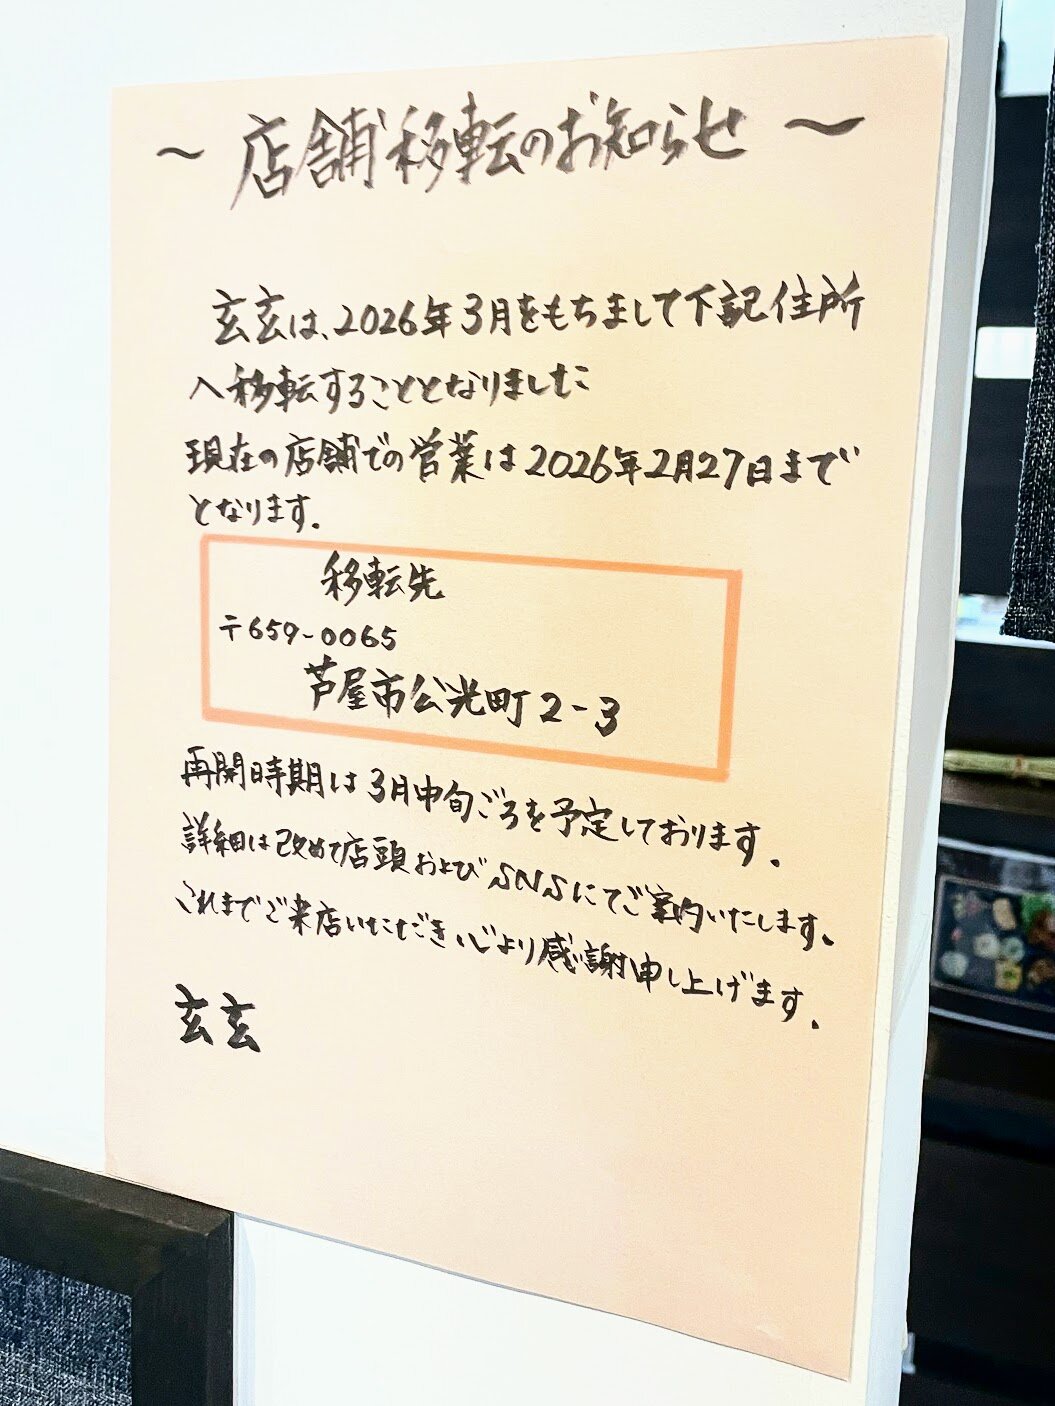 ～ 店舗移転のお知らせ ～
玄玄は、2026年3月をもちまして下記住所
へ移転することとなりました
現在の店舗での営業は2026年2月27日まで
となります。
移転先
〒659-0065
芦屋市公光町2-3
再開時期は3月中旬ごろを予定しております。
詳細は改めて店頭およびSNSにてご案内いたします。
これまでご来店いただき心より感謝申し上げます。
玄玄